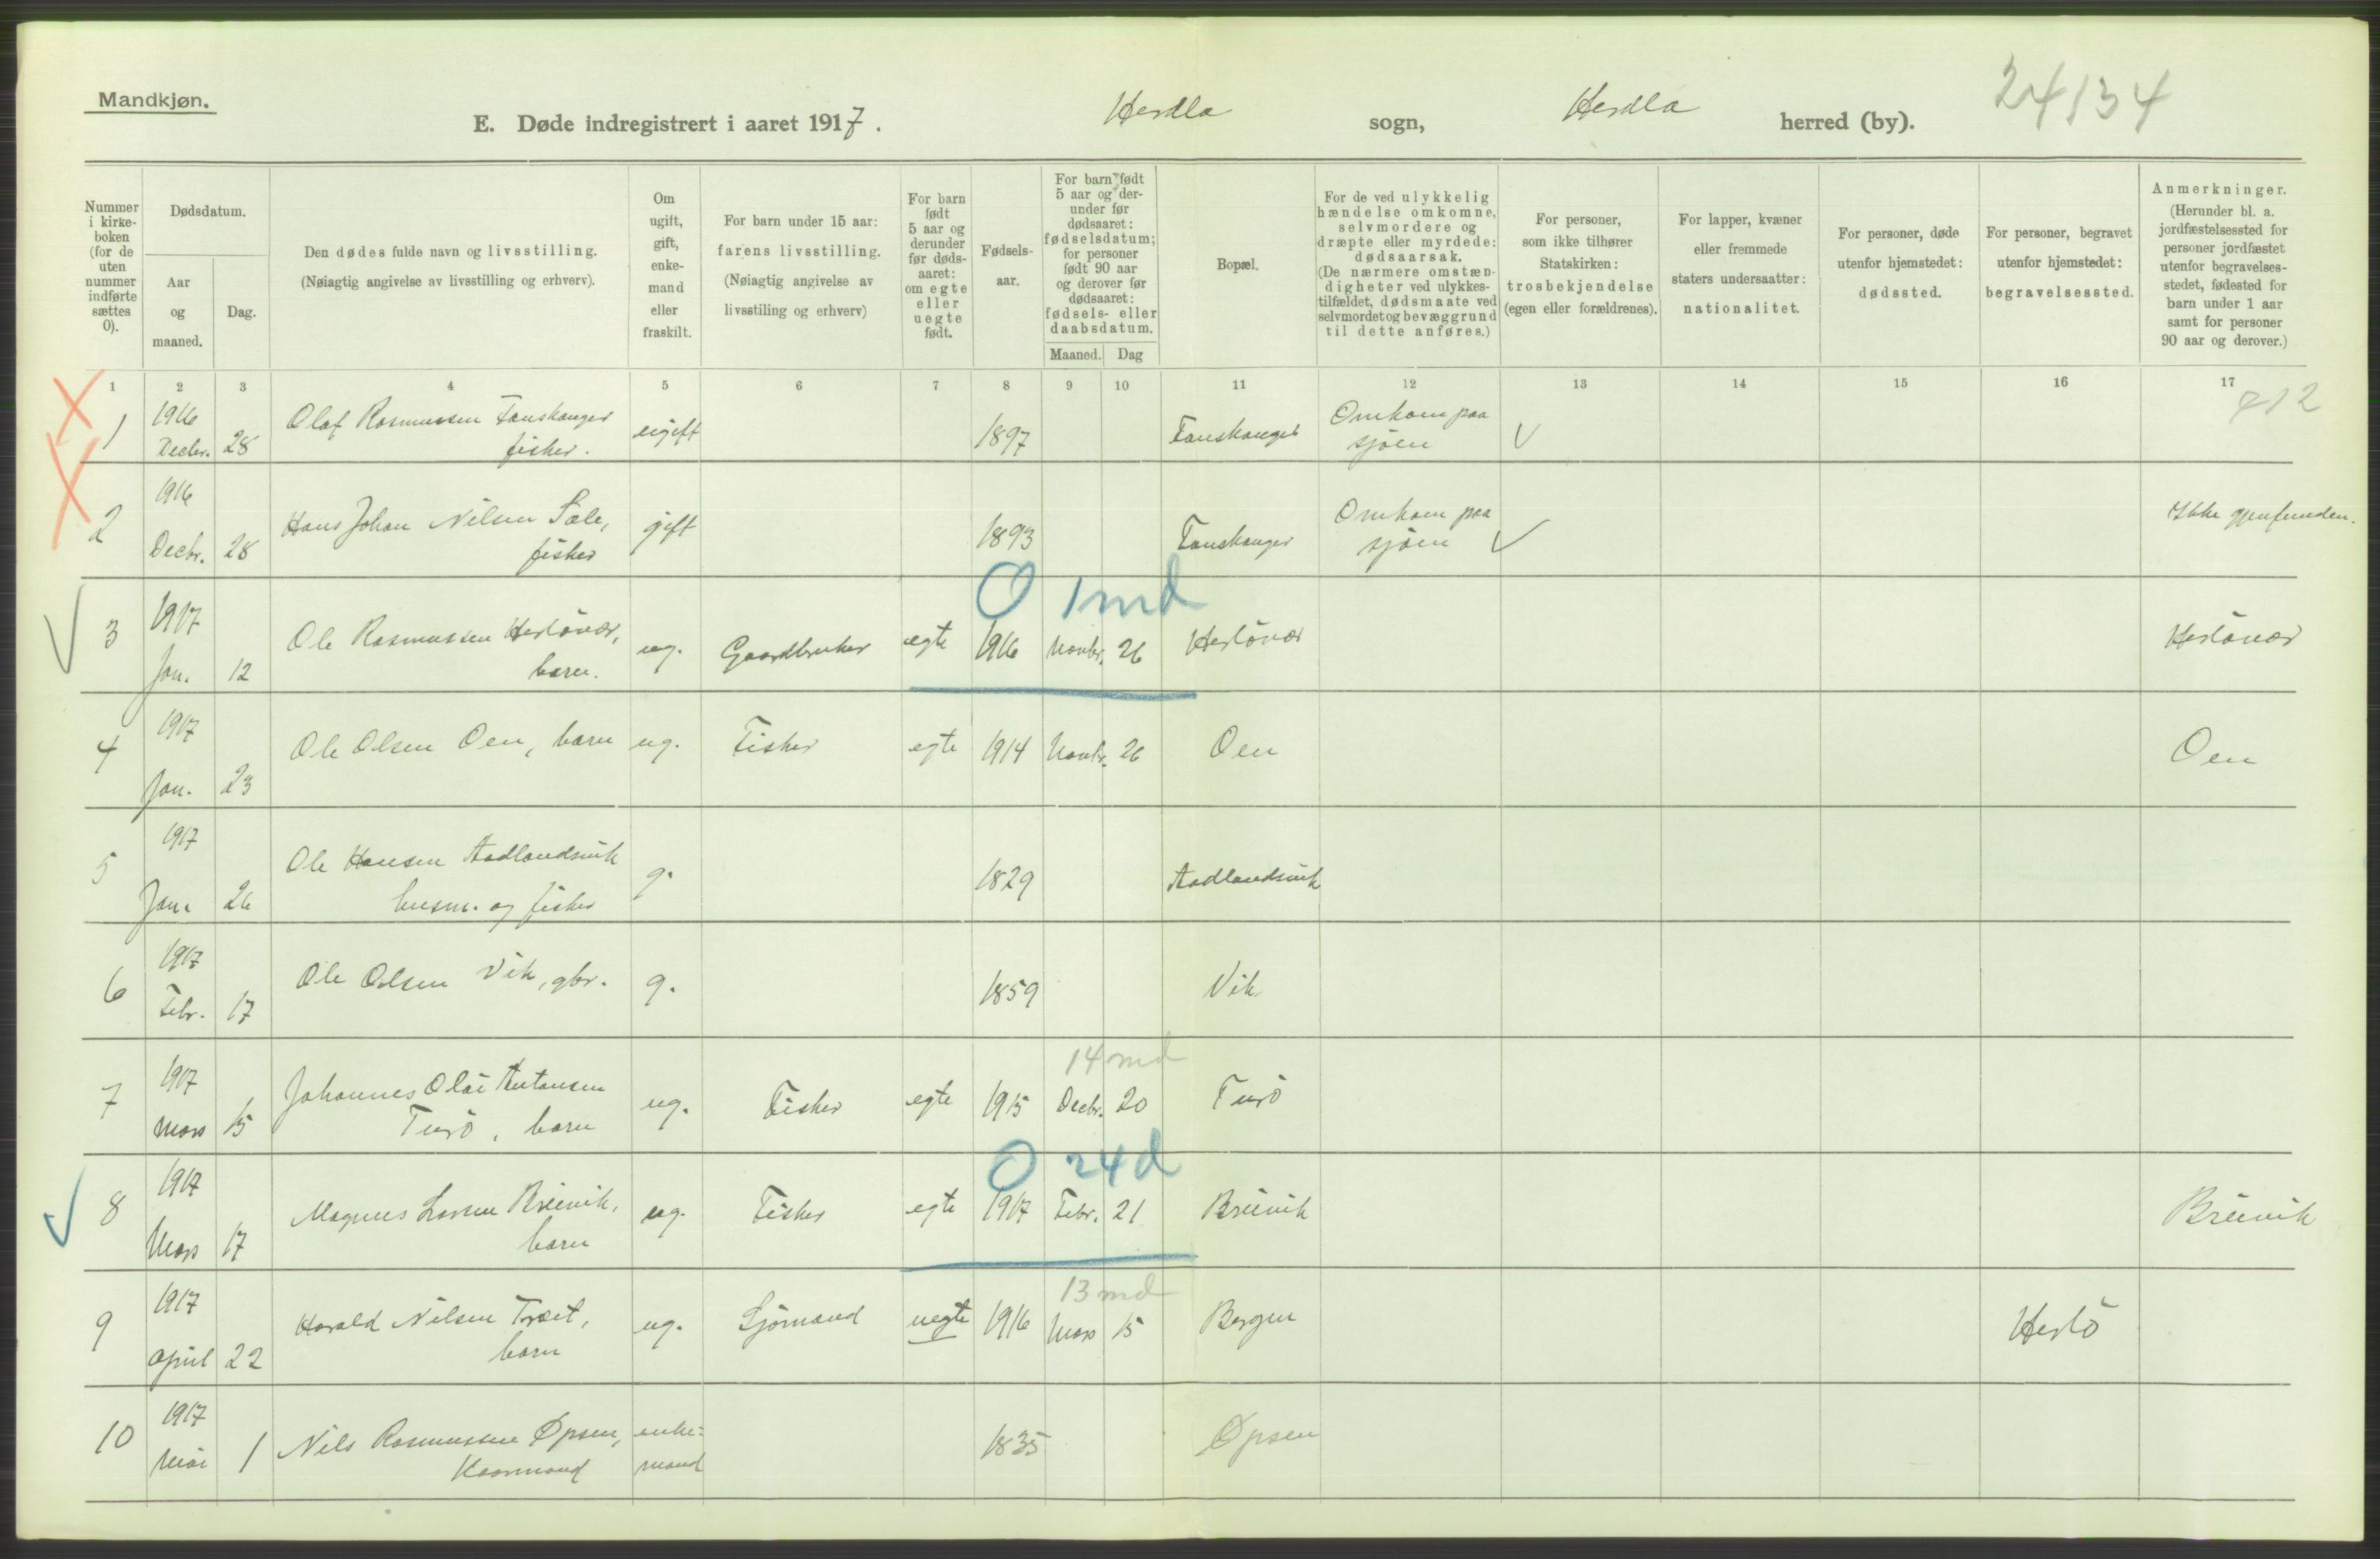 Mandkjøn.
E. Døde indregistrert i aaret 1917. Herdla sogn, Herdla herred (by). 24134
Nummer i kirkeboken (for de uten nummer indførte sættes 0).
Dødsdatum.
Aar og maaned.
Dag.
Den dødes fulde navn og livsstilling.
(Nøiagtig angivelse av livsstilling og erhverv).
Om ugift, gift, enkemand eller fraskilt.
For barn under 15 aar:
farens livsstilling.
(Nøiagtig angivelse av livsstiling og erhverv)
For barn født 5 aar og derunder før dødsaaret: om egte eller uegte født.
Fødselsaar.
For barn født 5 aar og derunder før dødsaaret: fødselsdatum; for personer født 90 aar og derover før dødsaaret: fødsels- eller daabsdatum.
Maaned. Dag
Bopæl.
For de ved ulykkelig hændelse omkomne, selvmordere og dræpte eller myrdede: dødsaarsak. (De nærmere omstændigheter ved ulykkestilfældet, dødsmaate ved selvmordet og bevæggrund til dette anføres.)
For personer, som ikke tilhører Statskirken: trosbekjendelse (egen eller forældrenes).
For lapper, kvæner eller fremmede staters undersaatter: nationalitet.
For personer, døde utenfor hjemstedet: dødssted.
For personer, begravet utenfor hjemstedet: begravelsessted.
Anmerkninger.
(Herunder bl. a. jordfæstelsessted for personer jordfæstet utenfor begravelsesstedet, fødested for barn under 1 aar samt for personer 90 aar og derover.)
1 2 3 4 5 6 7 8 9 10 11 12 13 14 15 16 17
712
1 1916 Decbr. 28 Olaf Rasmussen Fonskanger fisker. ugift 1897 Fonskanger Omkom paa sjøen
2 1916 Decbr. 28 Hans Johan Nilsen Sæle, fisker gift 1893 Fonskanger Omkom paa sjøen Ikke gjenfunden.
0 1 md
3 1917 Jan. 12 Ole Rasmussen Herlövær, barn. ug. Gaardbruker egte 1916 Novbr. 26 Herlövær Herlövær
4 1917 Jan. 23 Ole Olsen Oen, barn ug. Fisker egte 1914 Novbr. 26 Oen Oen
5 1917 Jan. 26 Ole Hansen Aadlandsvik husm. og fisker g. 1829 Aadlandsvik
6 1917 Febr. 17 Ole Olsen Vik, gbr. g. 1859 Vik
14 md
7 1917 Mars 15 Johannes Olai Antonsen Turö, barn ug. Fisker egte 1915 Decbr. 20 Turö
0 24 d
8 1917 Mars 17 Magnus Larsen Breivik, barn ug. Fisker egte 1917 Febr. 21 Breivik Breivik
13 md
9 1917 April 22 Harald Nilsen Træet, barn ug. Sjömand uegte 1916 Mars 15 Bergen Herlö
10 1917 Mai 1 Nils Rasmussen Øpsen, Kaarmand enkemand 1835 Øpsen